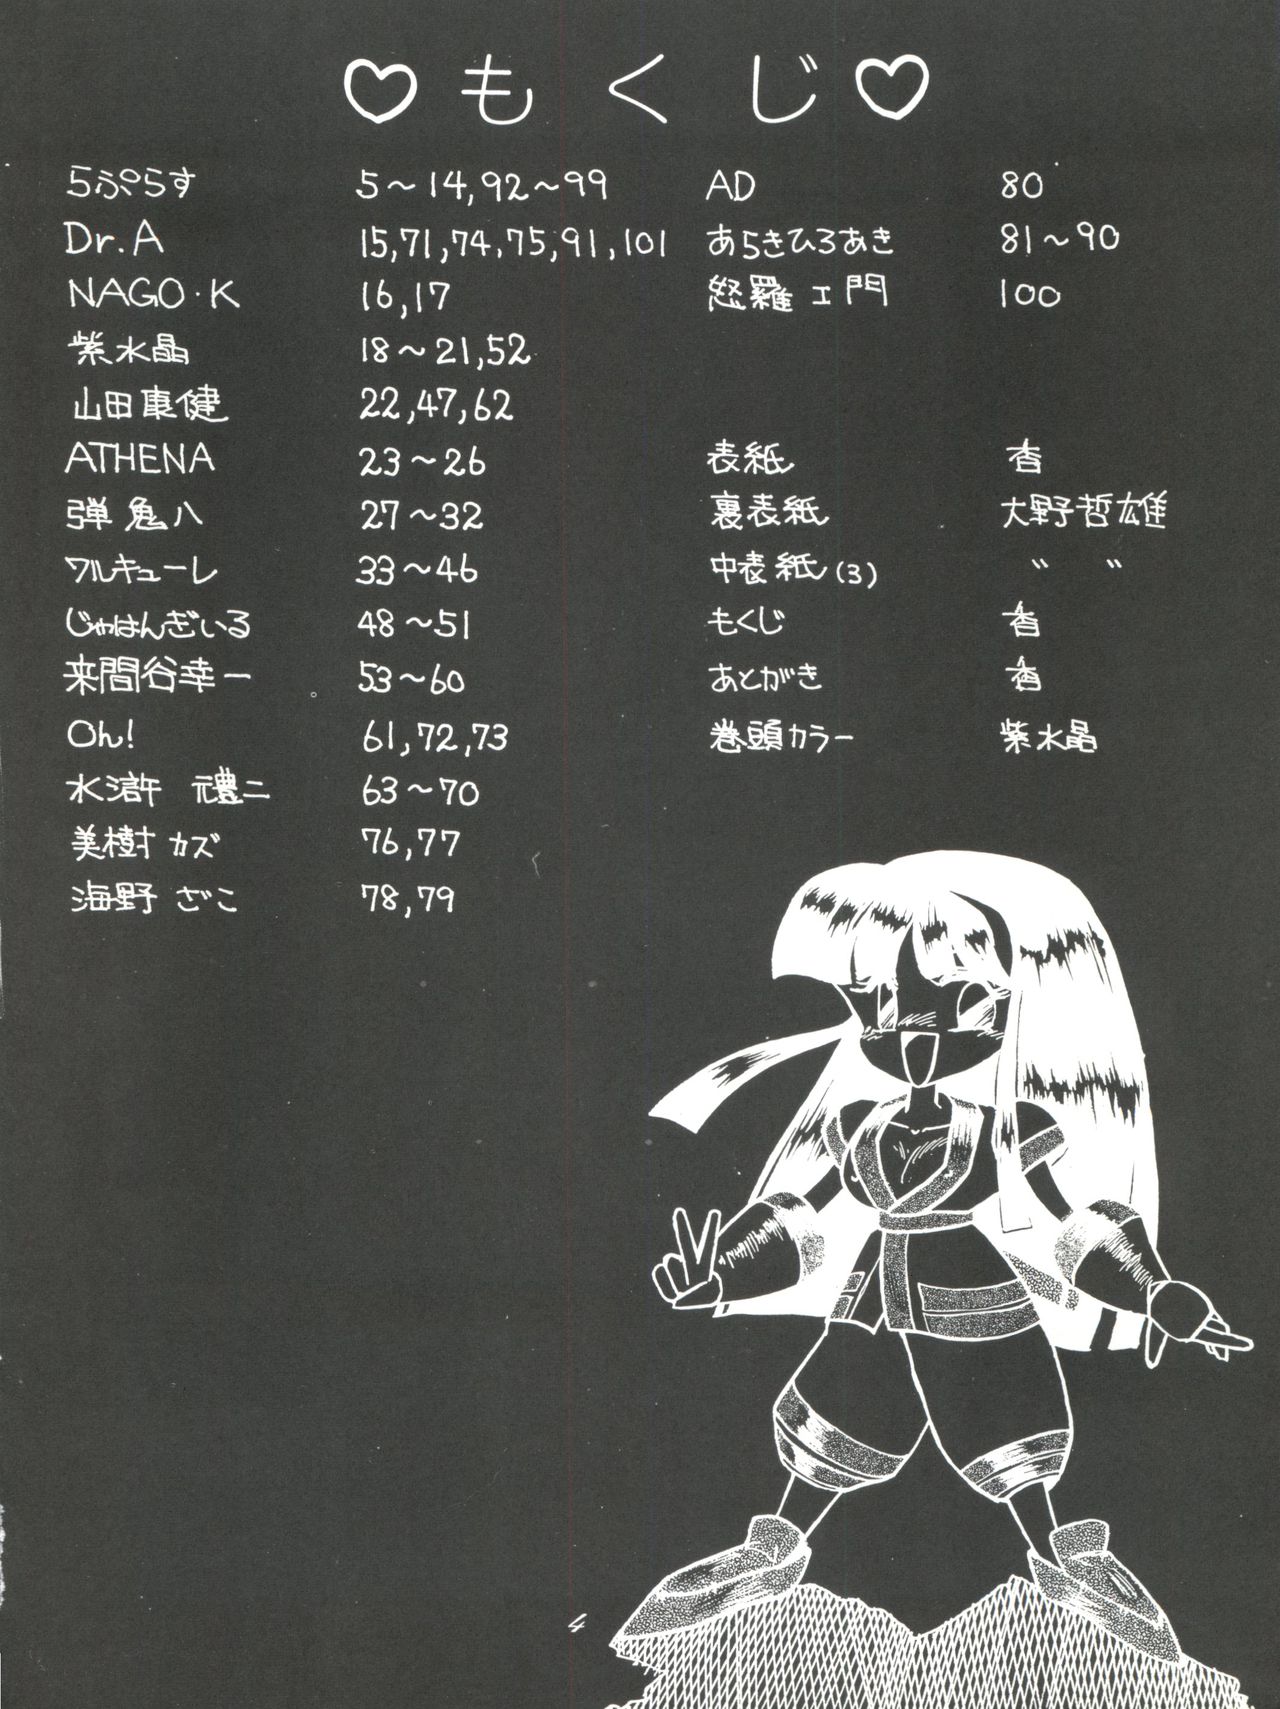 ♡もくじ♡
らぷらす 5～14,92～99
Dr.A 15,71,74,75,91,101
NAGO・K 16,17
紫水晶 18～21,52
山田車健 22,47,62
ATHENA 23～26
弾鬼八 27～32
ワルキューレ 33～46
じゃはんぎいる 48～51
来間谷幸一 53～60
Oh! 61,72,73
水滸 禮二 63～70
美樹カズ 76,77
海野ざこ 78,79
AD 80
あらきひろあき 81～90
怒羅ェ門 100
表紙 杳
裏表紙 大野哲雄
中表紙(3) 〃 〃
もくじ 杳
あとがき 杳
巻頭カラー 紫水晶
4